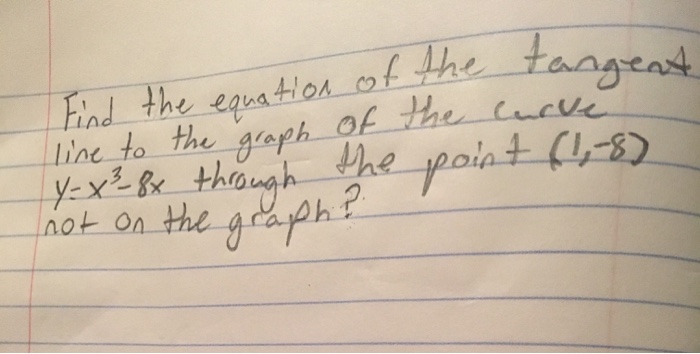 Find the equation of the tangent
line to the graph of the curve
y=x³-8x through the point (1,-8)
not on the graph?